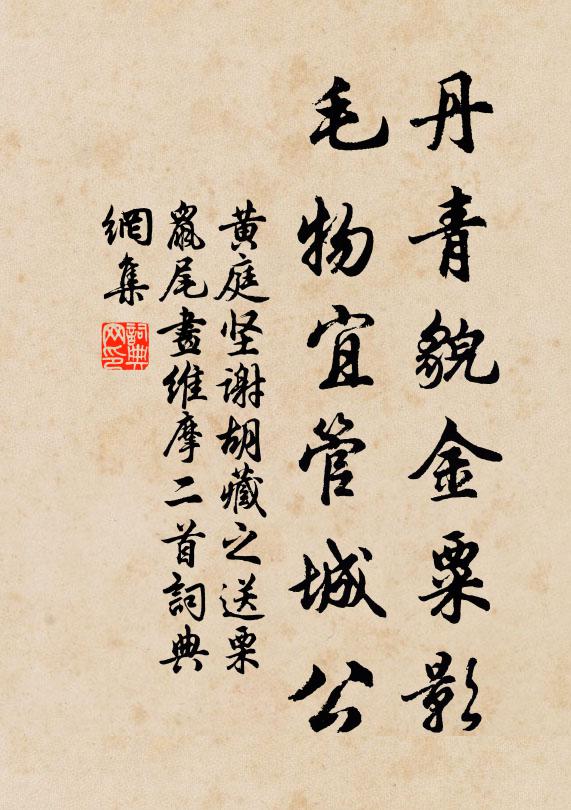 丹青貌金粟影
毛物宜管城公
黄庭坚谢胡藏之送栗
鼠尾畫維摩二首詞典
網集
詞典网印